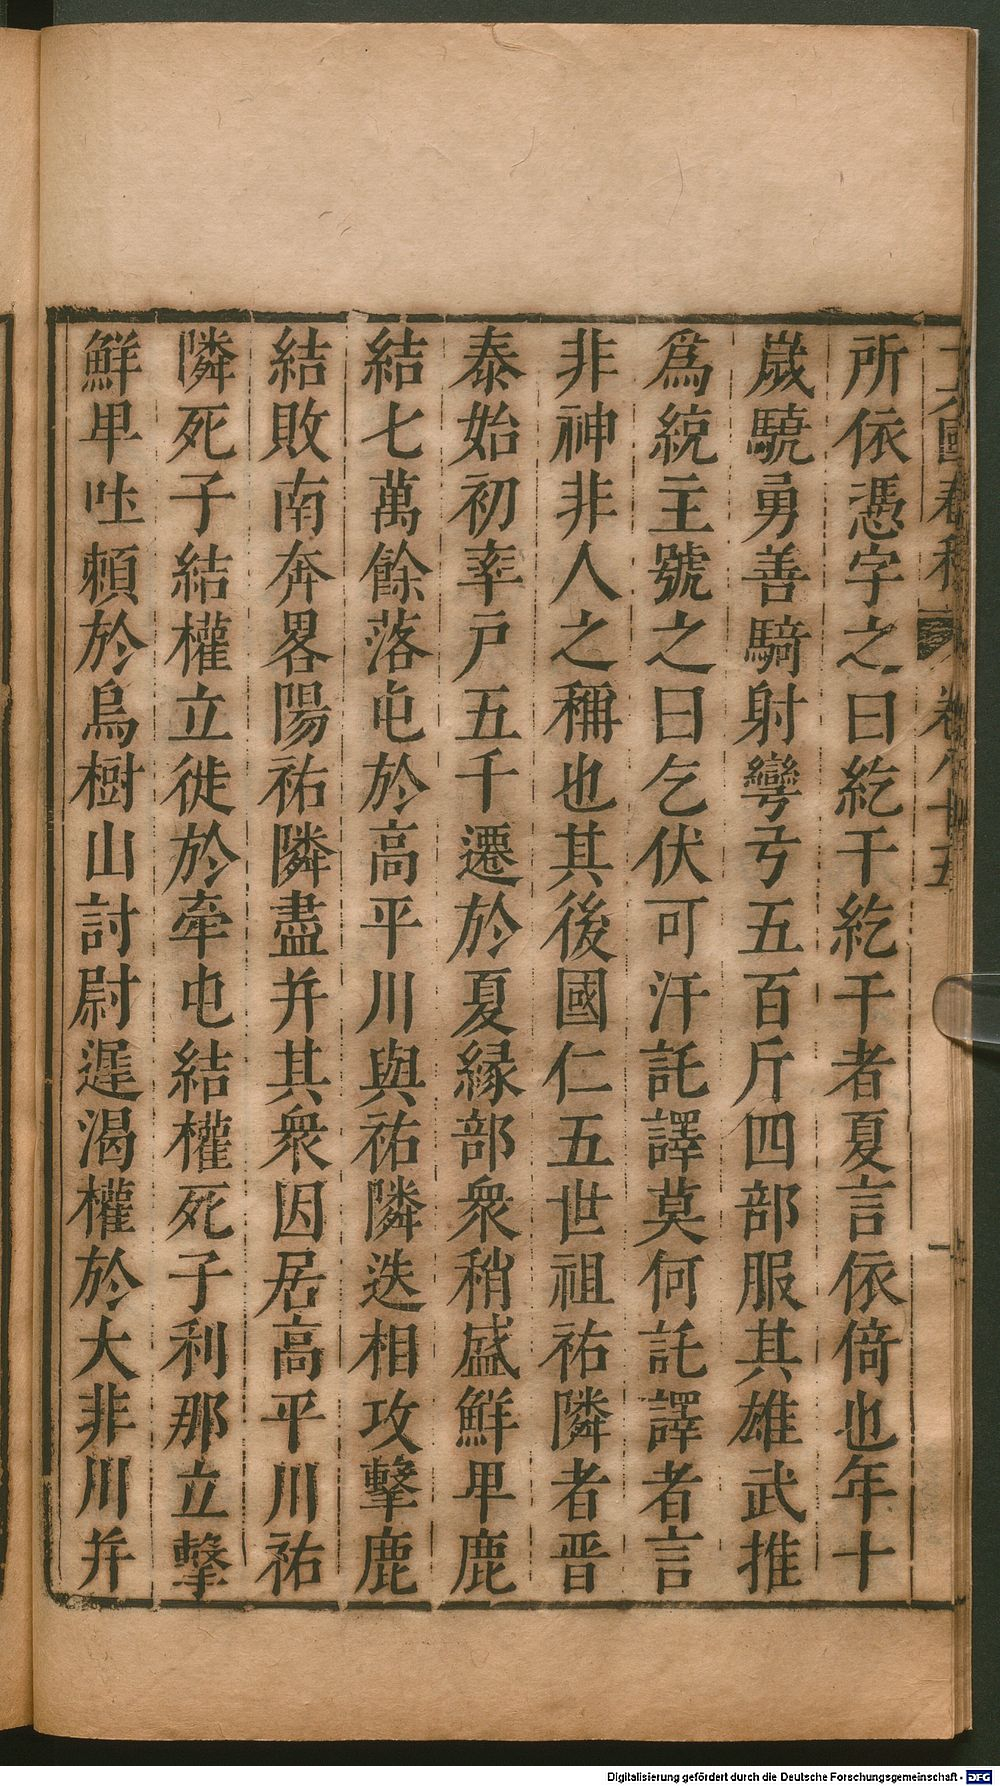 春秋 卷八十五
所依憑字之曰紇干紇干者夏言依倚也年十
嵗驍勇善騎射彎弓五百斤四部服其雄武推
爲統主號之曰乞伏可汗託鐸莫何託鐸者言
非神非人之稱也其後國仁五世祖祐隣者晋
泰始初率戸五千遷於夏縁部衆稍盛鮮𤰞鹿
結七萬餘落屯於高平川與祐隣迭相攻擊鹿
結敗南奔畧陽祐隣盡并其衆因居高平川祐
隣死子結權立徙於牽屯結權死子利那立擊
鮮𤰞吐頼於烏樹山討尉遲渴權於大非川并
Digitalisierung gefördert durch die Deutsche Forschungsgemeinschaft - DFG